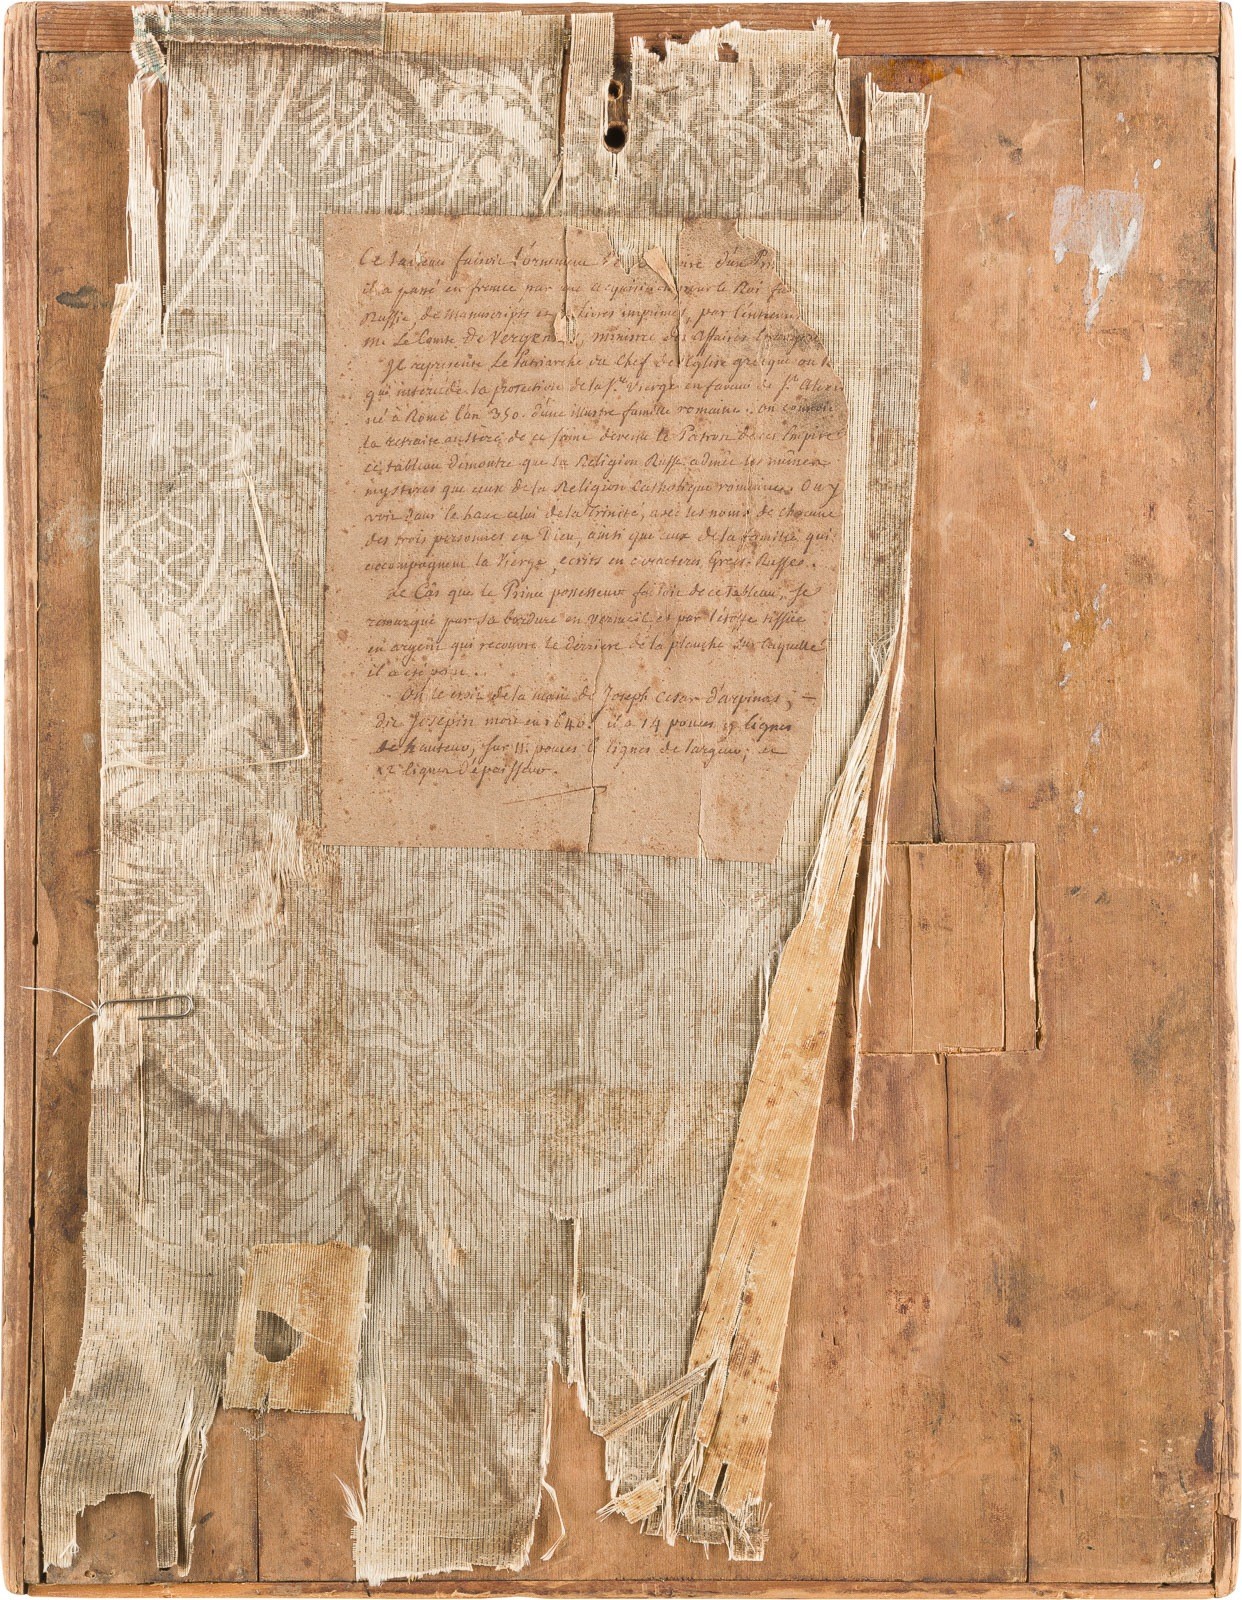 Ce tableau faisoit l'ornement d'un
il a passé en france par une acquisition pour le Roi
Russie de manuscripts et livres imprimés, par l'entrem
mr Le Comte de Vergennes, ministre des affaires
Il represente Le Patriarche ou Chef de l'Eglise grecque
qui intercède la protection de la Ste Vierge en faveur de St Alexi
né à Rome l'an 350. d'une illustre famille romaine. on connoit
la retraite austère de ce saint devenu le Patron de cet Empire
ce tableau démontre que la Religion Russe admet les mêmes
mystères que ceux de la Religion Catholique romaine. On y
voit dans le haut celui de la Trinité, avec les noms de chacune
des trois personnes en Dieu, ainsi que ceux de la famille qui
accompagnent la Vierge, ecrits en caractères Grecs-Russes.
Le Cas que le Prince possesseur faisoit de ce tableau, se
remarque par sa bordure en vermeil, et par l'étoffe tissüe
en argent qui recouvre le derrière de la planche sur laquelle
il a été posé.
On le croit de la main de Joseph Cesar d'arpinas,
dit Josepin mort en 1640. il a 14 pouces lignes
de hauteur, sur 11. pouces 6 lignes de largeur; et
lignes d'épaisseur.